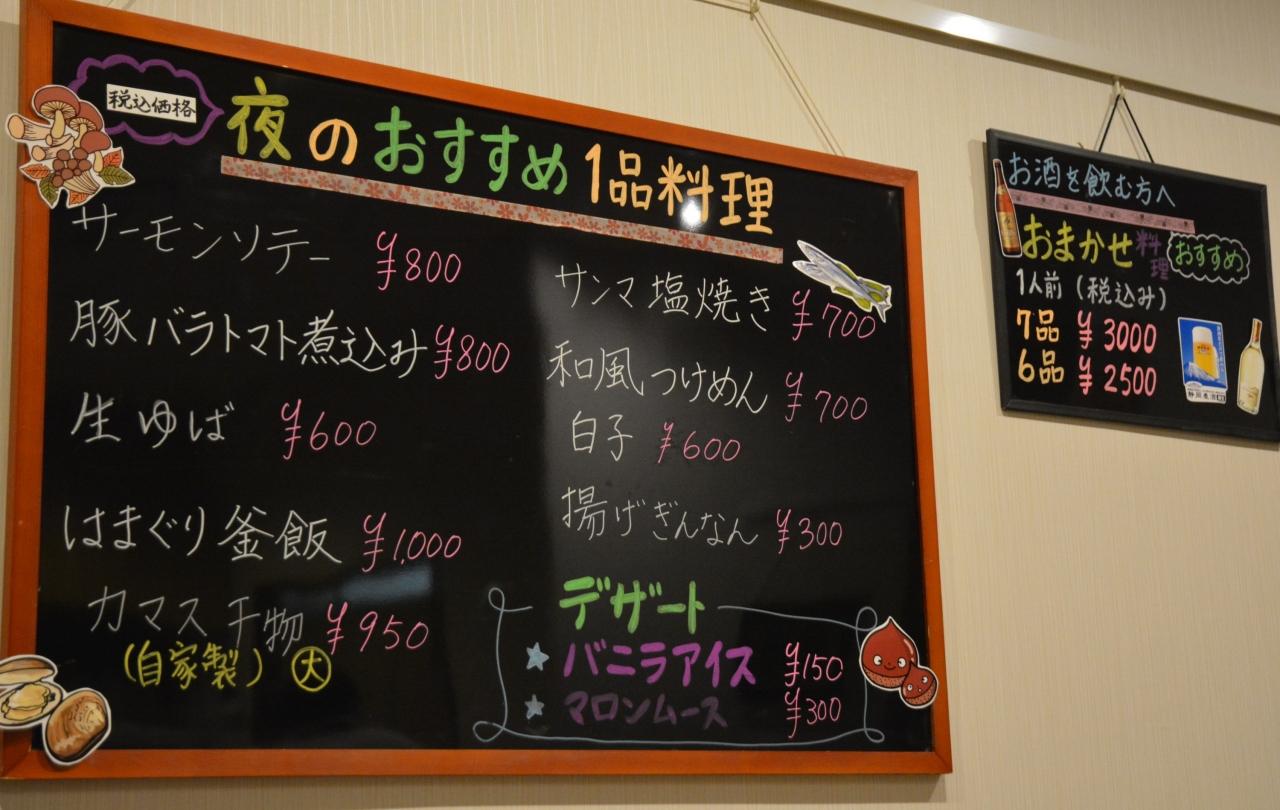 税込価格
夜のおすすめ1品料理
サーモンソテー ¥800
豚バラトマト煮込み ¥800
生ゆば ¥600
はまぐり釜飯 ¥1,000
カマス干物 ¥950
(自家製) 大
サンマ塩焼き ¥700
和風つけめん ¥700
白子 ¥600
揚げぎんなん ¥300
デザート
★ バニラアイス ¥150
★ マロンムース ¥300
お酒を飲む方へ
おまかせ料理 おすすめ
1人前(税込み)
7品 ¥3000
6品 ¥2500